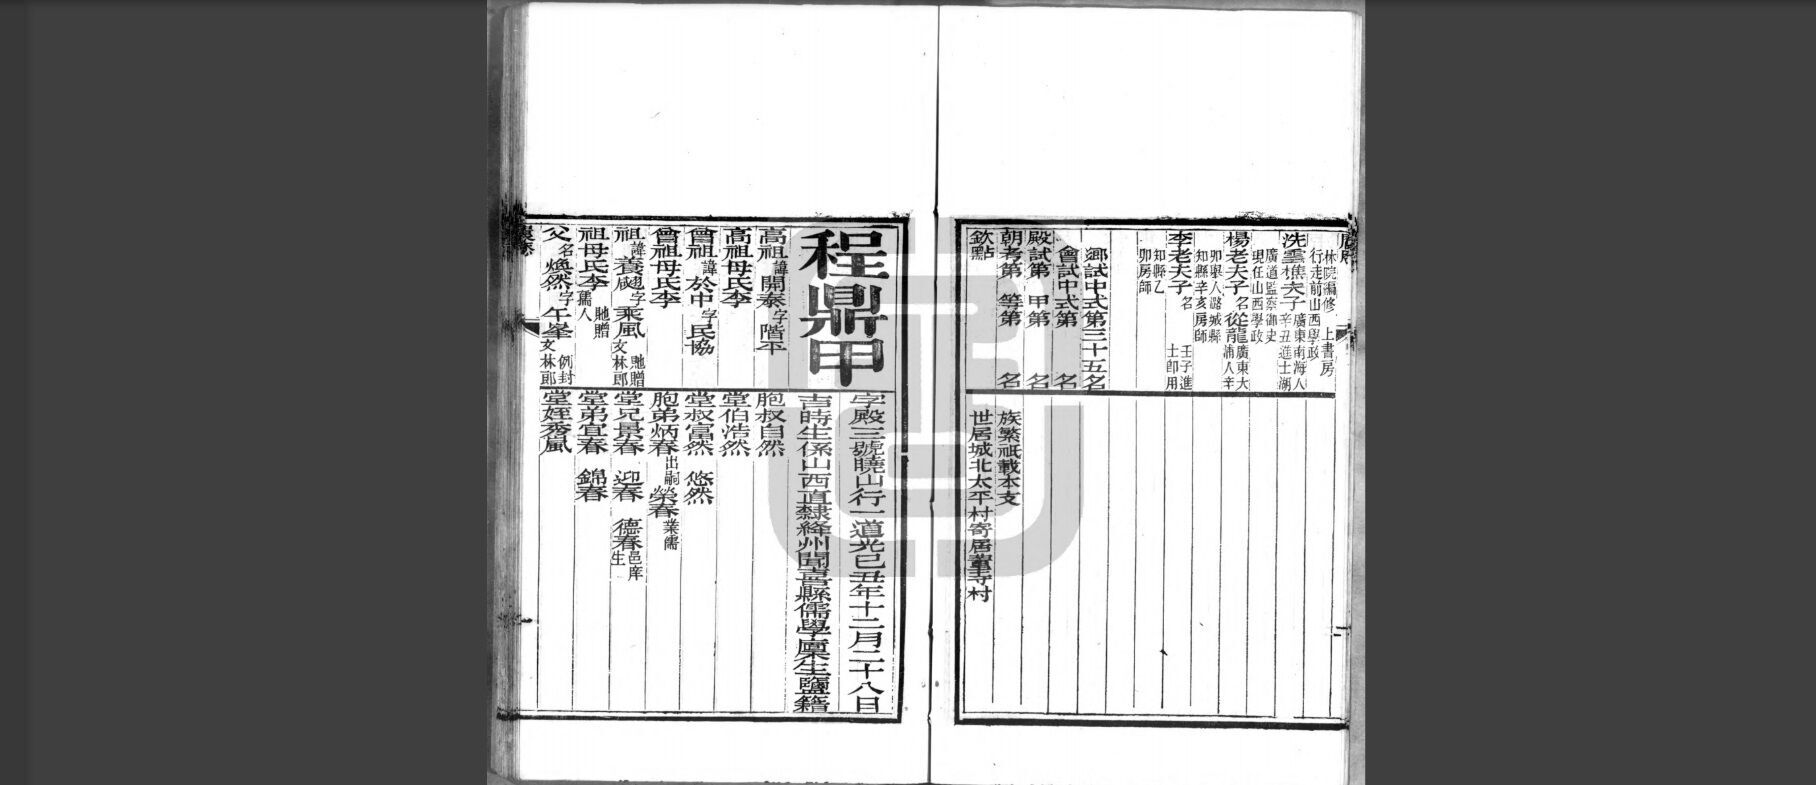 林院編修　上書房
行走前山西學政
冼雲樵夫子廣東南海人
辛丑進士湖
廣道監察御史
現任山西學政
楊老夫子名從龍廣東大
埔人辛
卯舉人潞城縣
知縣辛亥房師
李老夫子名　壬子進
士卽用
知縣乙
卯房師
鄉試中式第三十五名
會試中式第　名
殿試第　甲第　名
朝考第　等第　名
欽點
族繁祇載本支
世居城北太平村寄居董寺村
程鼎甲
字殿三號曉山行一道光己丑年十二月二十八日
吉時生係山西直隸絳州聞喜縣儒學廩生鹽籍
高祖諱開泰字階平
高祖母氏李
曾祖諱於中字民協
曾祖母氏李
祖諱養彪字乘風貤贈文林郎
祖母氏李貤贈孺人
父名煥然字午峯例封文林郎
胞叔自然
堂伯浩然
堂叔富然　悠然
胞弟炳春出嗣　榮春業儒
堂兄景春　迎春　德春邑庠生
堂弟宜春　錦春
堂姪秀嵐